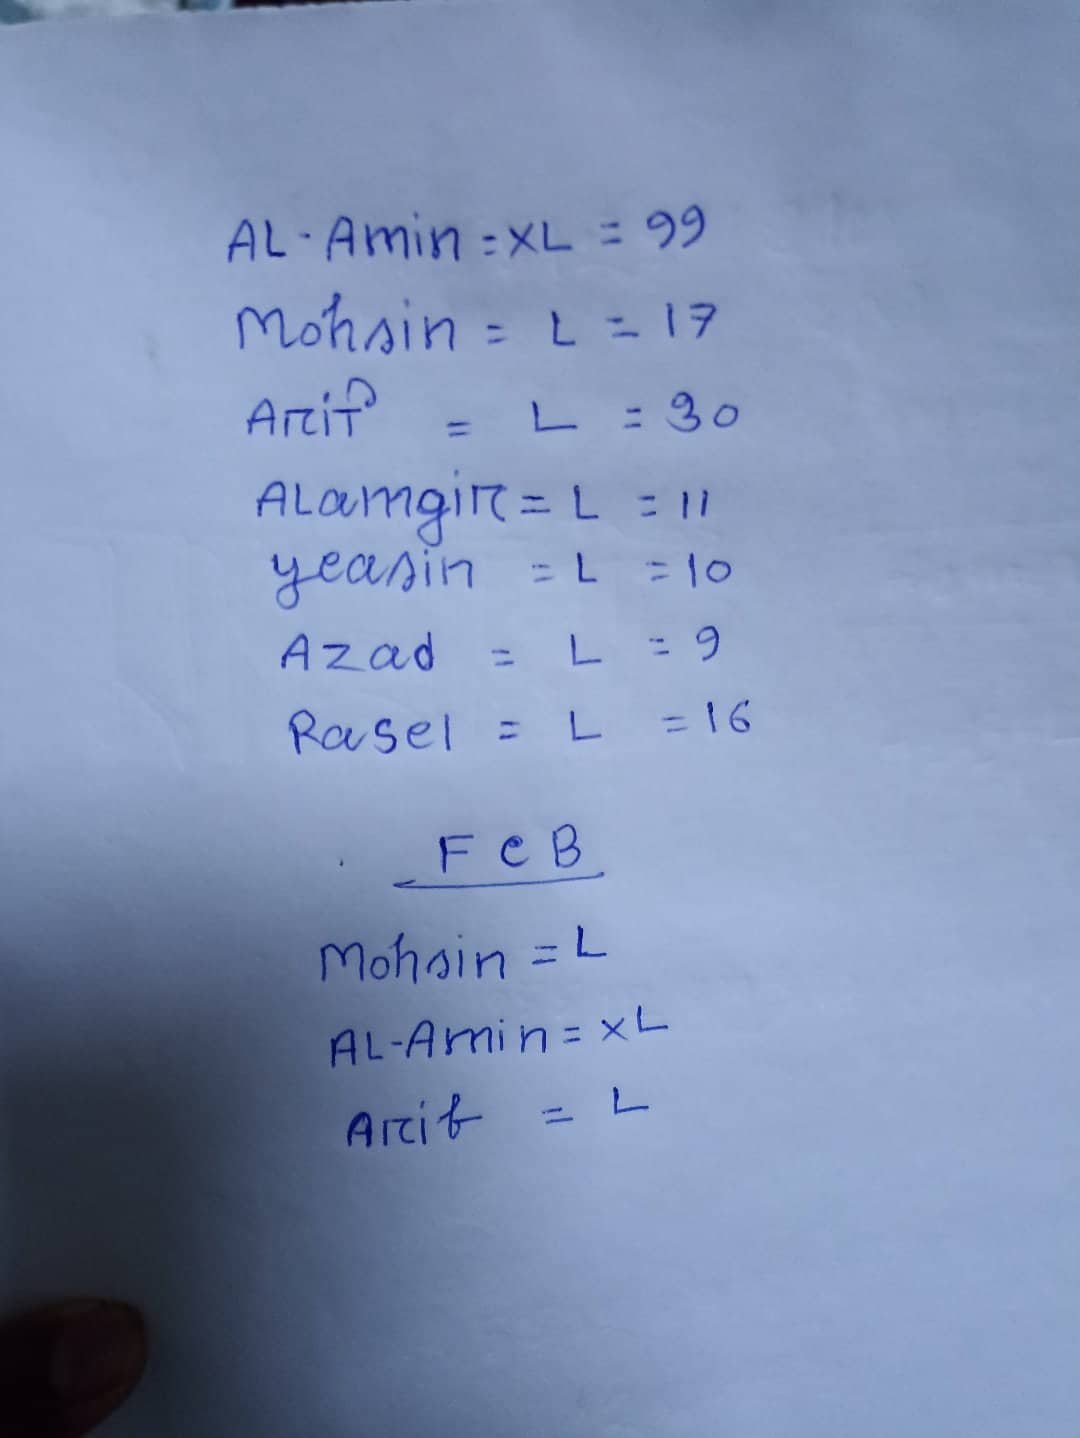 AL-Amin = XL = 99
Mohsin = L = 17
Arif = L = 30
ALamgir = L = 11
yeasin = L = 10
Azad = L = 9
Rasel = L = 16
F C B
Mohsin = L
AL-Amin = XL
Arif = L